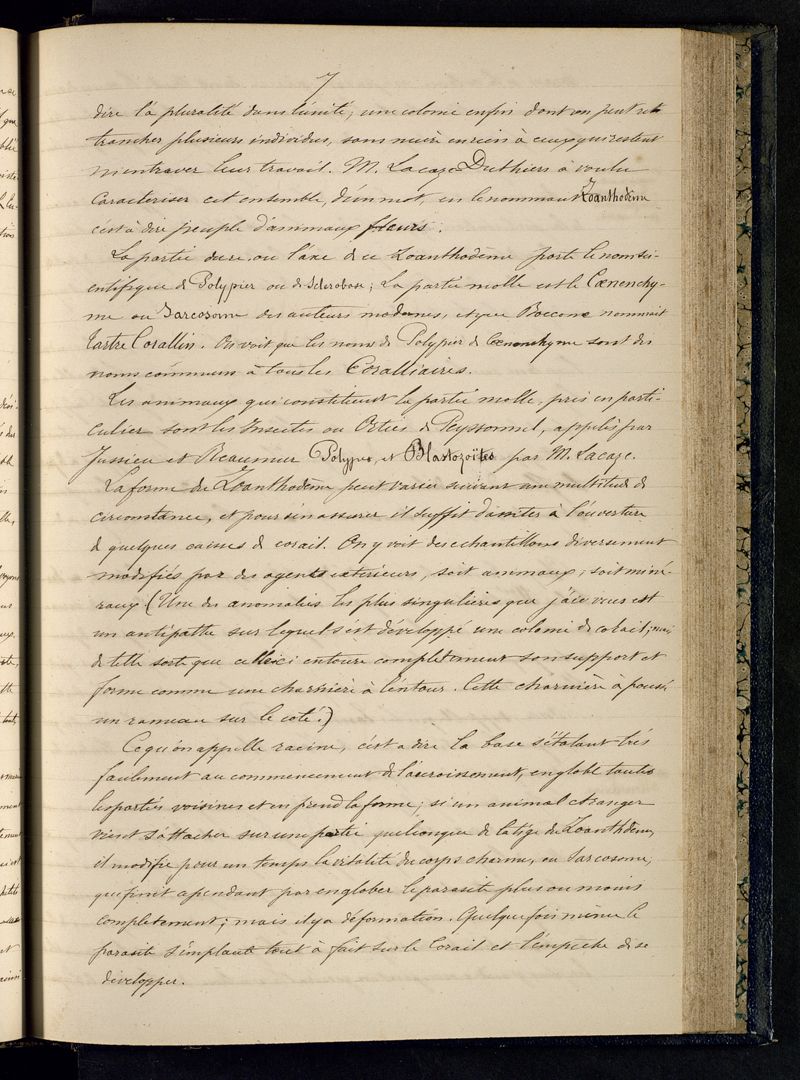 7
dire la pluralité dans l'unité, une colonie enfin dont on peut re-
trancher plusieurs individus, sans nuire en rien à ceux qui restent
ni entraver leur travail. M. Lacaze Duthiers à voulu
Caractériser cet ensemble, d'un mot, en le nommant Zoanthodème
c'est à dire peuple d'animaux fleurs.
La partie dure, ou l'axe de ce Zoanthodème porte le nom sci-
entifique de Polypier ou de Sclerobase; La partie molle est le Cœnenchy-
me ou Sarcosome des auteurs modernes, et que Boccone nommait
tartre Corallin. On voit que les noms de Polypier de Cœnenchyme sont des
noms communs à tous les Coralliaires.
Les animaux qui constituent la partie molle, pris en parti-
culier sont les Insectes ou Orties de Peyssonnel, appelés par
Jussieu et Réaumur Polypes, et Blastozoïtes par M. Lacaze.
La forme du Zoanthodème peut varier suivant une multitude de
circonstance, et pour s'en assurer il suffit d'assister à l'ouverture
de quelques caisses de corail. On y voit des echantillons diversement
modifiés par des agents extérieurs, soit animaux, soit miné-
raux (Une des anomalies les plus singulières que j'aie vues est
un antipathe sur lequel s'est développé une colonie de corail; mais
de telle sorte que celle ci entoure complètement son support et
forme comme une charnière à l'entour. Cette charnière à poussé
un rameau sur le coté.)
Ce qu'on appelle racine, c'est a dire la base s'étalant très
facilement au commencement de l'accroissement, englobe toutes
les parties voisines et en prend la forme; si un animal etranger
vient s'attacher sur une partie quelconque de la tige du Zoanthdème,
il modifie pour un temps la vitalité du corps charnu, ou Sarcosome,
qui finit cependant par englober le parasite plus ou moins
complètement; mais il y a déformation. Quelque fois même le
parasite s'implante tout à fait sur le Corail et l'empêche de se
développer.